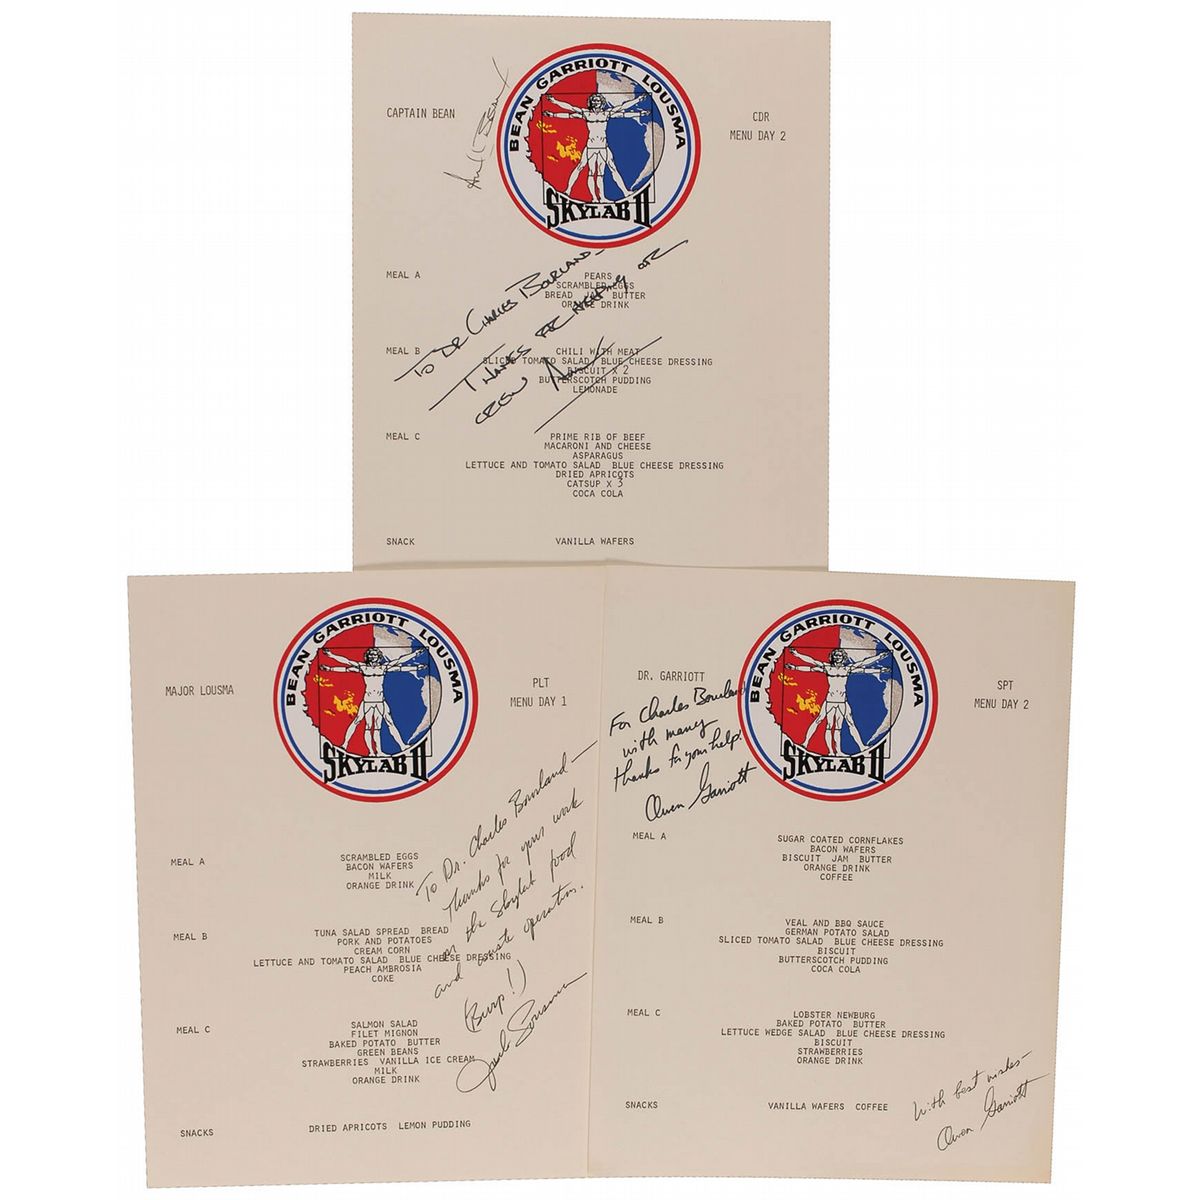 CAPTAIN BEAN
Alan Bean
BEAN GARRIOTT LOUSMA
SKYLAB II
CDR
MENU DAY 2
MEAL A
PEARS
SCRAMBLED EGGS
BREAD JAM BUTTER
ORANGE DRINK
TO DR CHARLES BOURLAND—
THANKS FOR HELPING OUR
CREW
MEAL B
CHILI WITH MEAT
SLICED TOMATO SALAD BLUE CHEESE DRESSING
BISCUIT X 2
BUTTERSCOTCH PUDDING
LEMONADE
MEAL C
PRIME RIB OF BEEF
MACARONI AND CHEESE
ASPARAGUS
LETTUCE AND TOMATO SALAD BLUE CHEESE DRESSING
DRIED APRICOTS
CATSUP X 3
COCA COLA
SNACK
VANILLA WAFERS
MAJOR LOUSMA
BEAN GARRIOTT LOUSMA
SKYLAB II
PLT
MENU DAY 1
MEAL A
SCRAMBLED EGGS
BACON WAFERS
MILK
ORANGE DRINK
MEAL B
TUNA SALAD SPREAD BREAD
PORK AND POTATOES
CREAM CORN
LETTUCE AND TOMATO SALAD BLUE CHEESE DRESSING
PEACH AMBROSIA
COKE
To Dr. Charles Bourland—
Thanks for your work
on the Skylab food
and waste operation.
(Burp!)
Jack Lousma
MEAL C
SALMON SALAD
FILET MIGNON
BAKED POTATO BUTTER
GREEN BEANS
STRAWBERRIES VANILLA ICE CREAM
MILK
ORANGE DRINK
SNACKS
DRIED APRICOTS LEMON PUDDING
DR. GARRIOTT
BEAN GARRIOTT LOUSMA
SKYLAB II
SPT
MENU DAY 2
For Charles Bourland
with many
thanks for your help!
Owen Garriott
MEAL A
SUGAR COATED CORNFLAKES
BACON WAFERS
BISCUIT JAM BUTTER
ORANGE DRINK
COFFEE
MEAL B
VEAL AND BBQ SAUCE
GERMAN POTATO SALAD
SLICED TOMATO SALAD BLUE CHEESE DRESSING
BISCUIT
BUTTERSCOTCH PUDDING
COCA COLA
MEAL C
LOBSTER NEWBURG
BAKED POTATO BUTTER
LETTUCE WEDGE SALAD BLUE CHEESE DRESSING
BISCUIT
STRAWBERRIES
ORANGE DRINK
SNACKS
VANILLA WAFERS COFFEE
With best wishes—
Owen Garriott